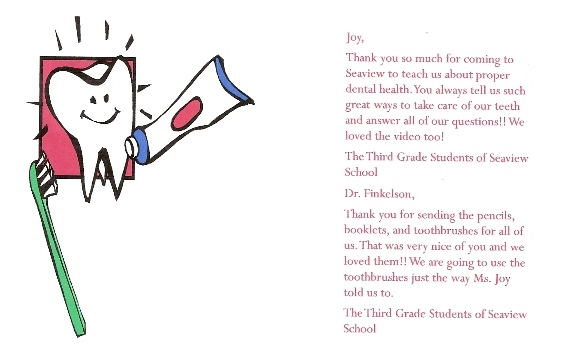 Joy,
Thank you so much for coming to
Seaview to teach us about proper
dental health. You always tell us such
great ways to take care of our teeth
and answer all of our questions!! We
loved the video too!
The Third Grade Students of Seaview
School
Dr. Finkelson,
Thank you for sending the pencils,
booklets, and toothbrushes for all of
us. That was very nice of you and we
loved them!! We are going to use the
toothbrushes just the way Ms. Joy
told us to.
The Third Grade Students of Seaview
School